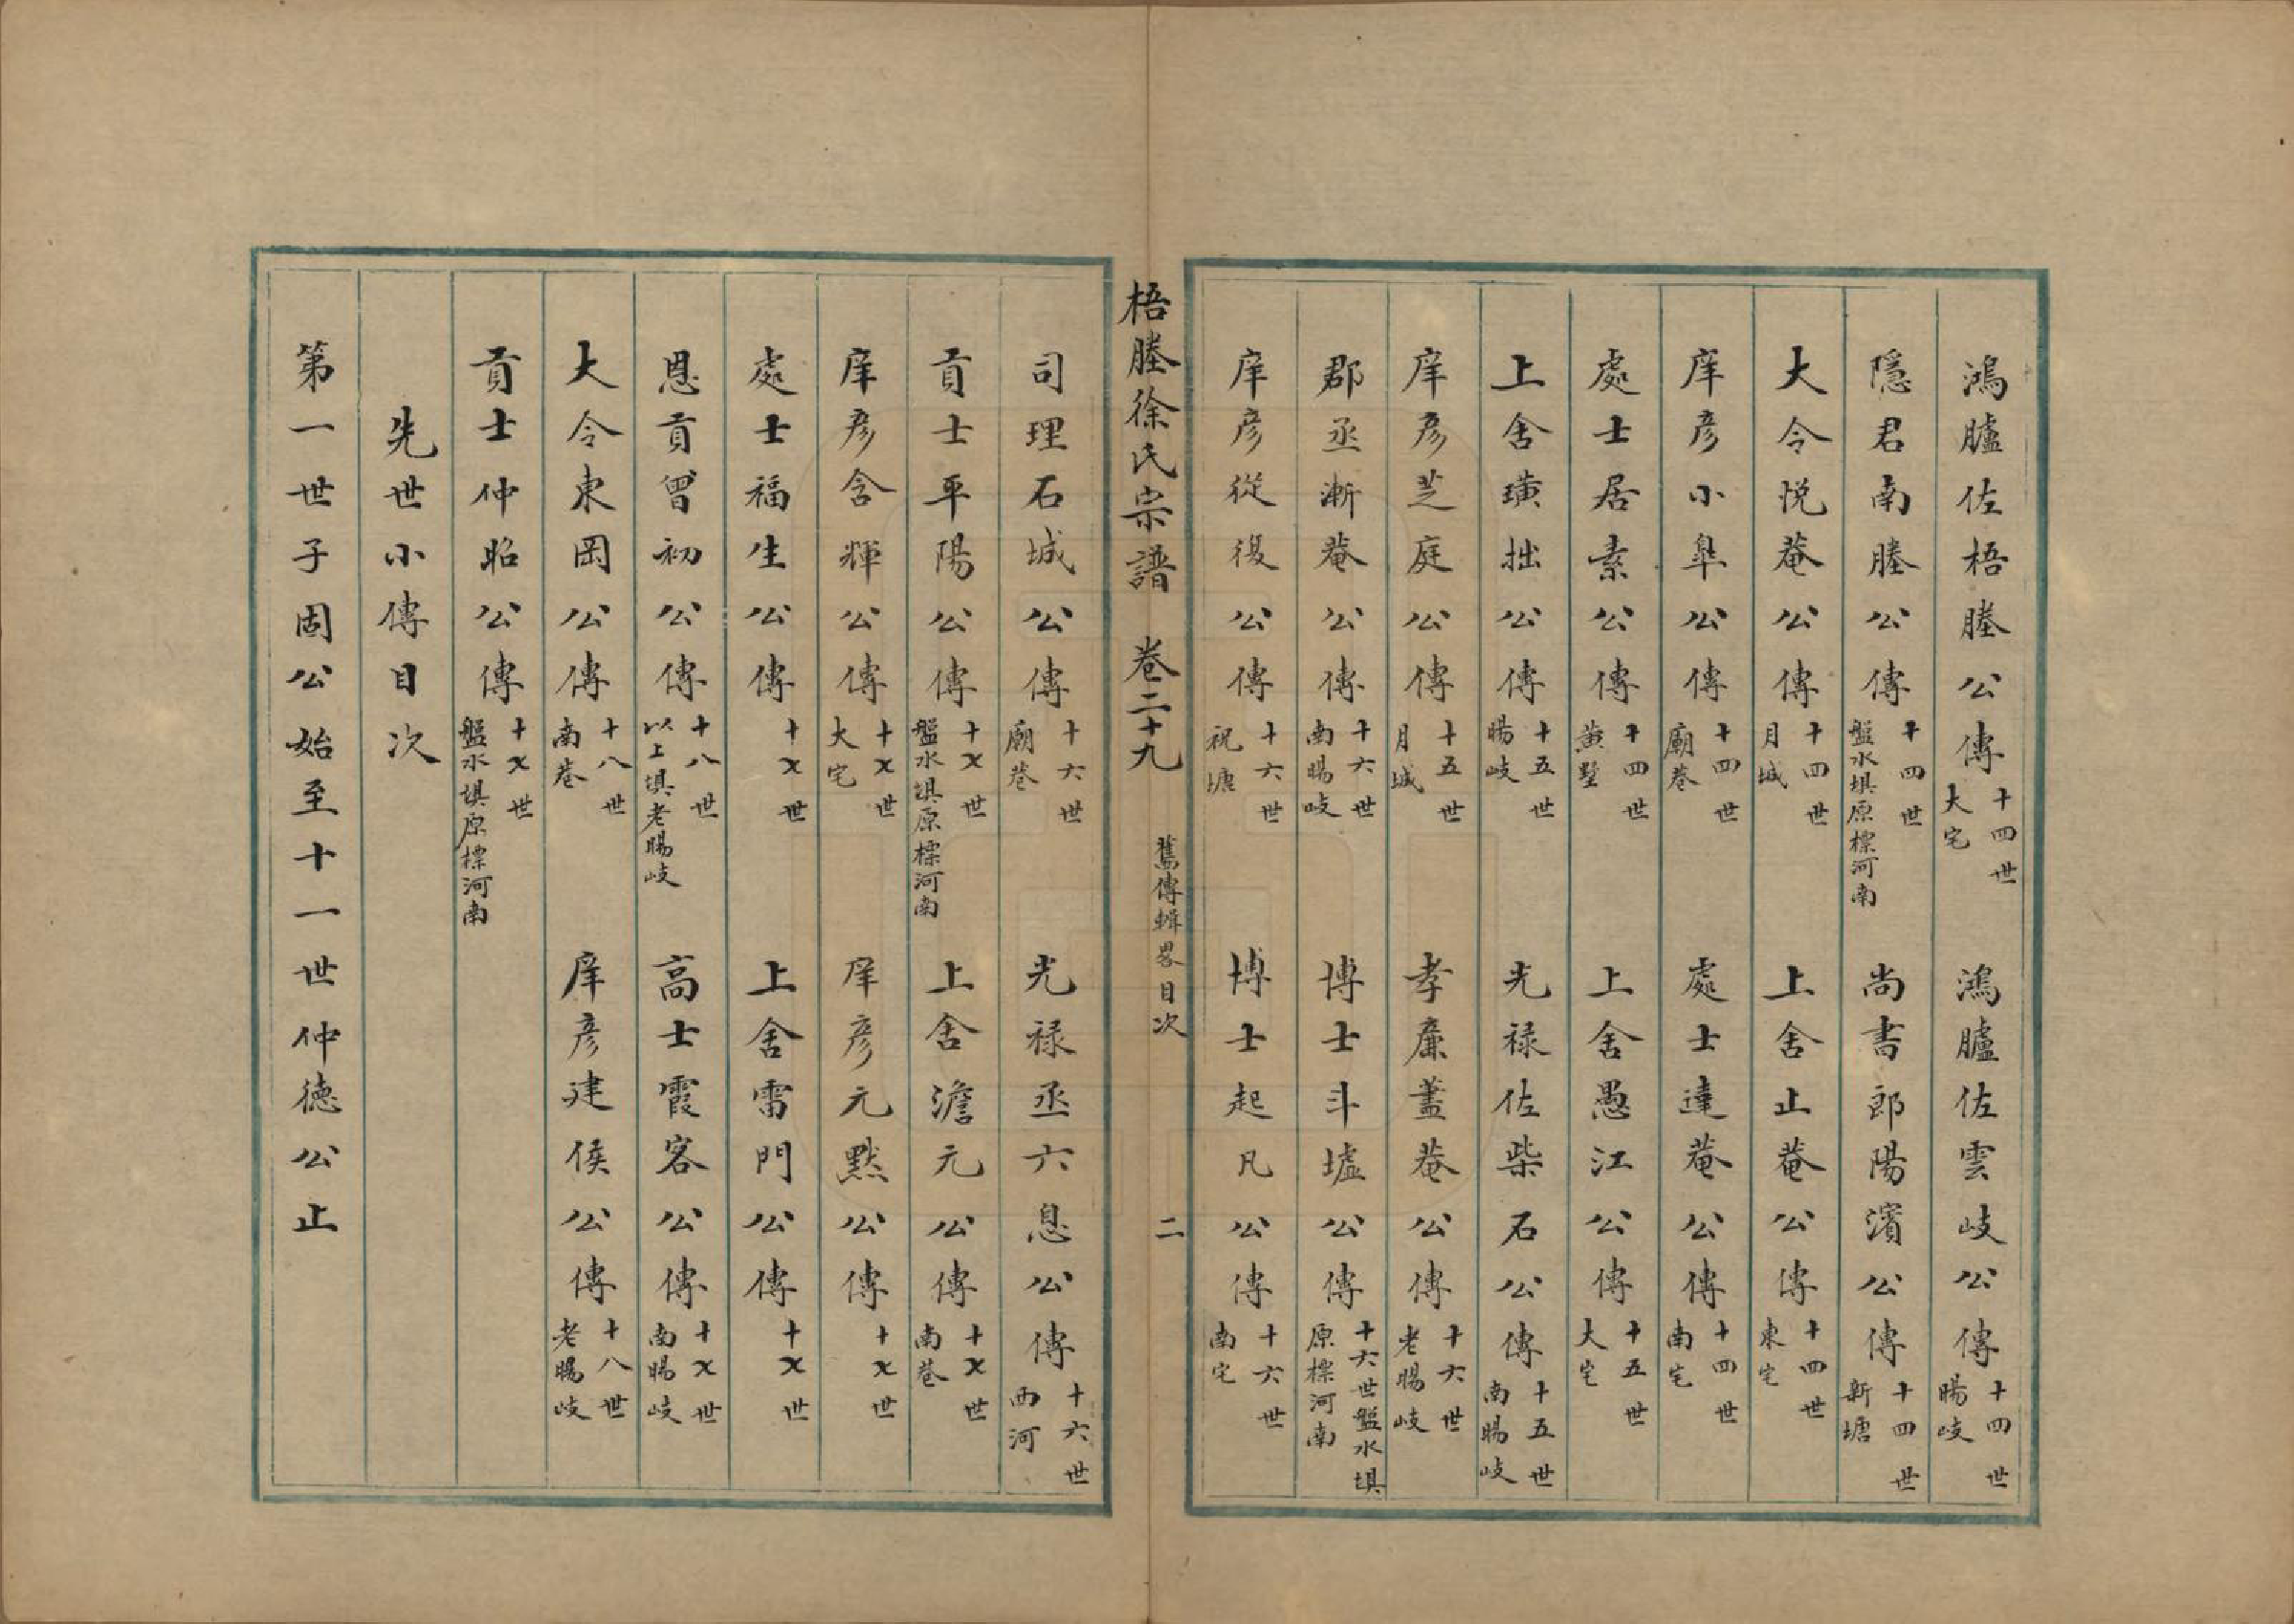 鴻臚佐梧塍公傳 十四世 大宅 鴻臚佐雲岐公傳 十四世 暘岐
隱君南塍公傳 十四世 盤水塤原標河南 尚書郎陽濱公傳 十四世 新塘
大令悅菴公傳 十四世 月城 上舍止菴公傳 十四世 東宅
庠彥小皐公傳 十四世 廟巷 處士達菴公傳 十四世 南宅
處士居素公傳 十四世 黄墅 上舍愚江公傳 十五世 大宅
上舍璜拙公傳 十五世 暘岐 光祿佐柴石公傳 十五世 南暘岐
庠彥芝庭公傳 十五世 月城 孝廉藎菴公傳 十六世 老暘岐
郡丞漸菴公傳 十六世 南暘岐 博士斗墟公傳 十六世盤水塤 原標河南
庠彥從復公傳 十六世 祝塘 博士起凡公傳 十六世 南宅
梧塍徐氏宗譜 卷二十九 舊傳輯畧目次 二
司理石城公傳 十六世 廟巷 光祿丞六息公傳 十六世 西河
貢士平陽公傳 十〤世 盤水塤原標河南 上舍澹元公傳 十〤世 南巷
庠彥含輝公傳 十〤世 大宅 庠彥元黙公傳 十〤世
處士福生公傳 十〤世 上舍雷門公傳 十〤世
恩貢曾初公傳 十八世 以上塤老暘岐 高士霞客公傳 十〤世 南暘岐
大令東岡公傳 十八世 南巷 庠彥建侯公傳 十八世 老暘岐
貢士仲昭公傳 十〤世 盤水塤原標河南
先世小傳目次
第一世子固公始至十一世仲德公止